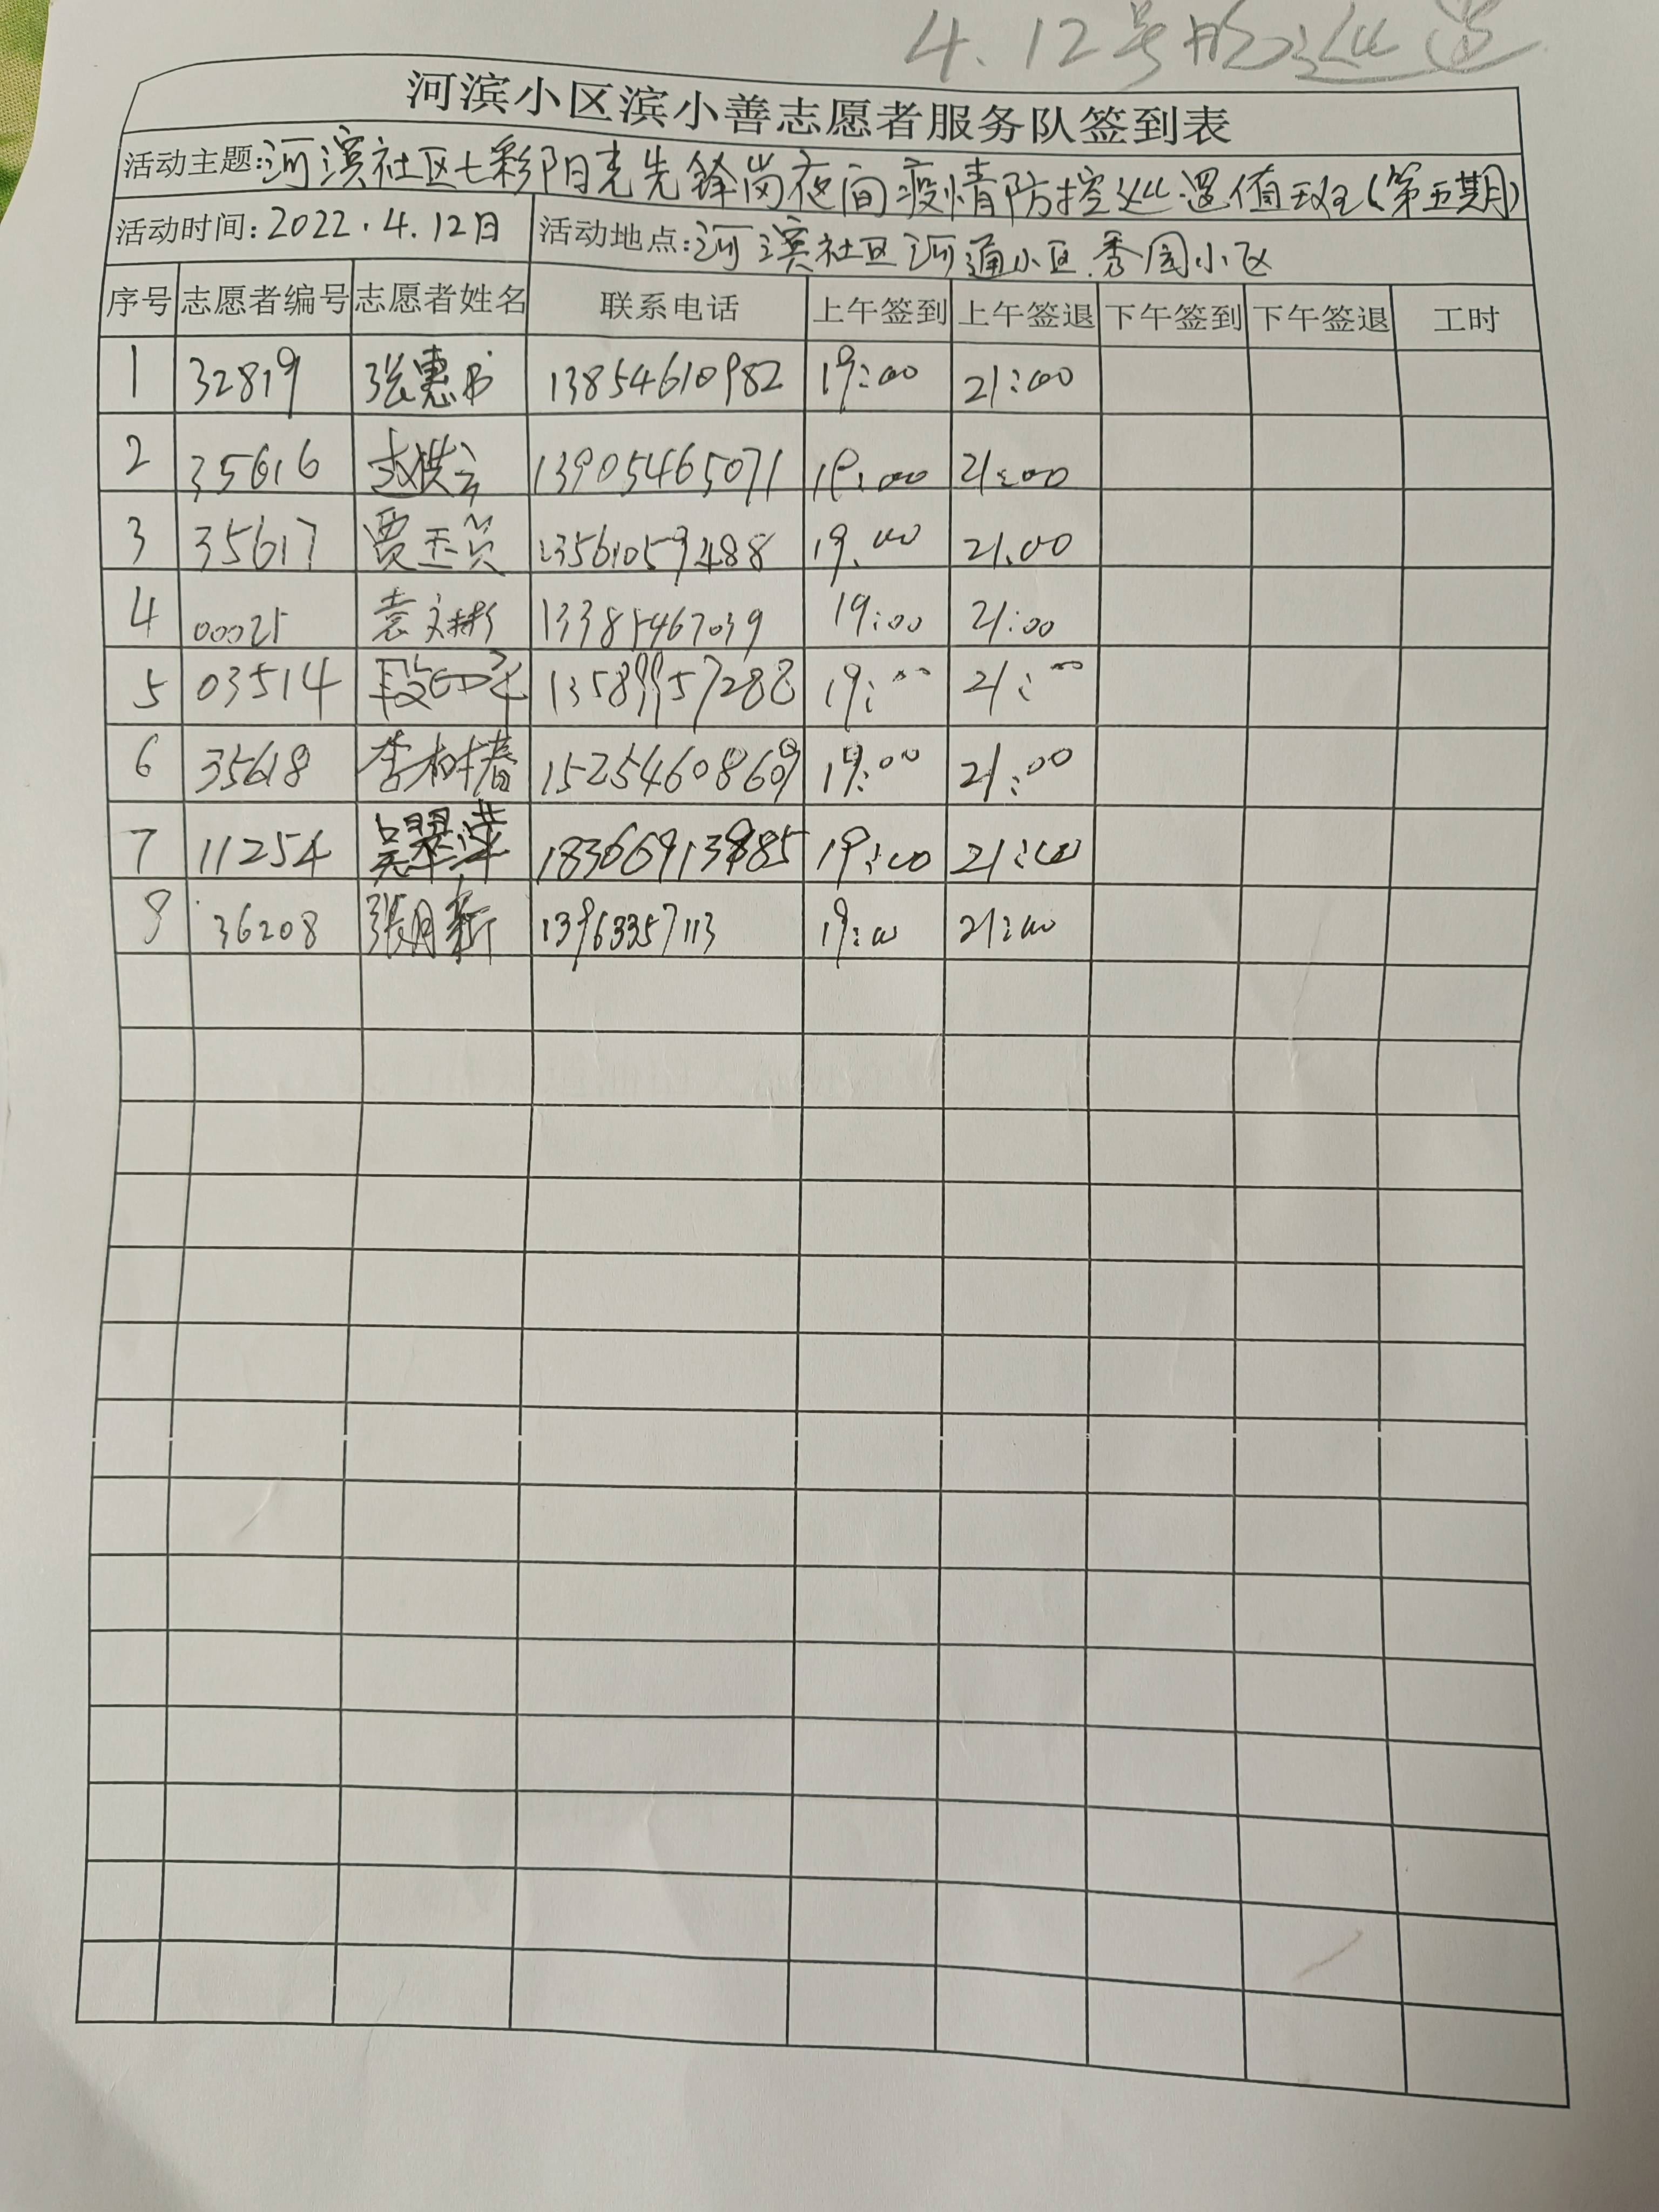 4.12号晚巡逻
河滨小区滨小善志愿者服务队签到表
活动主题:河滨社区七彩阳光先锋岗夜间疫情防控巡逻值班(第五期)
活动时间:2022.4.12日 活动地点:河滨社区河通小区.秀园小区
序号 志愿者编号 志愿者姓名 联系电话 上午签到 上午签退 下午签到 下午签退 工时
1 32819 张惠书 13854610982 19:00 21:00
2 35616 13905465071 19:00 21:00
3 35617 贾玉贞 13561059488 19.00 21.00
4 00025 袁文彬 13385467039 19:00 21:00
5 03514 段 13589957288 19:00 21:00
6 35618 李树春 15254608609 19:00 21:00
7 11254 吴翠萍 19:00 21:00
8 36208 张月新 13963357113 19:00 21:00